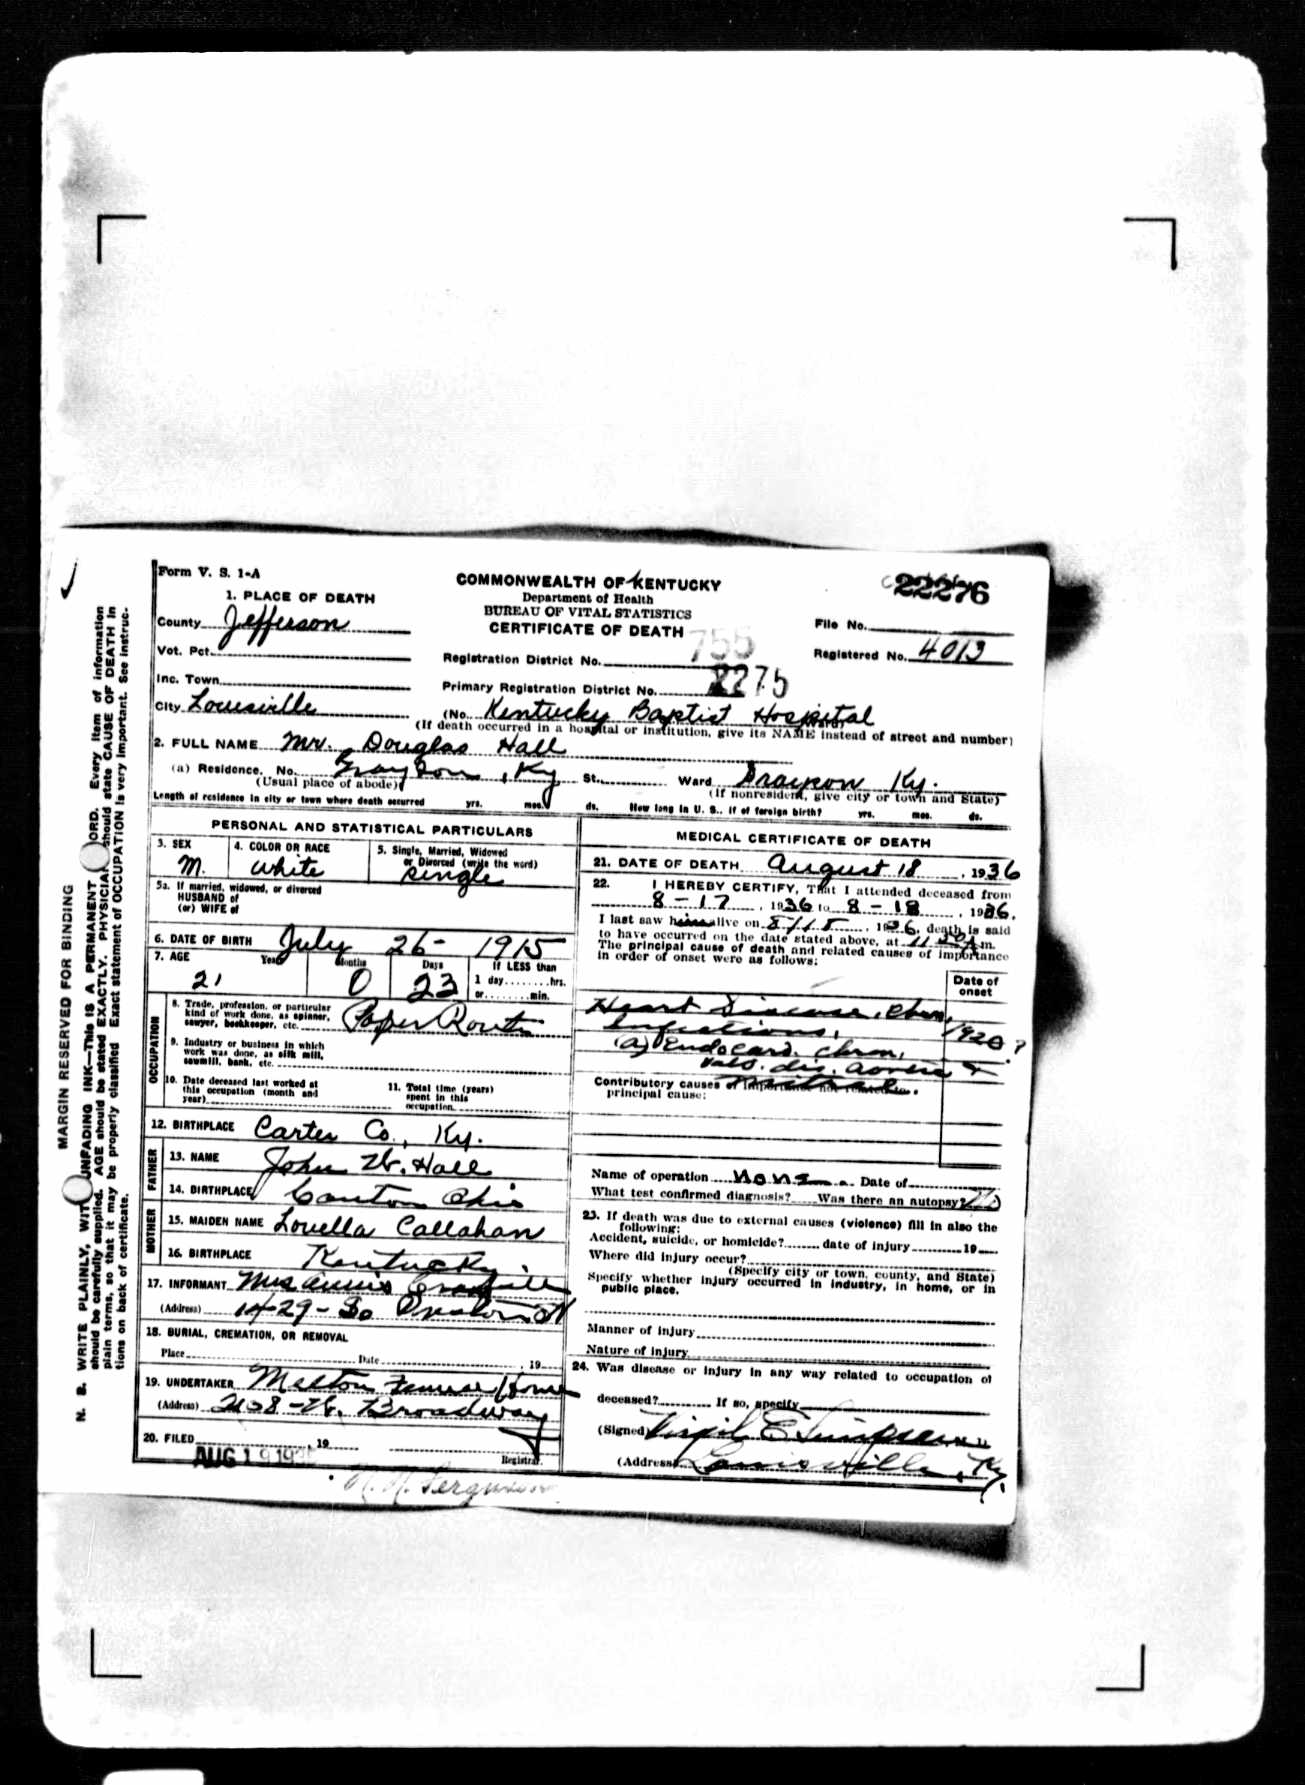 Form V. S. 1-A
COMMONWEALTH OF KENTUCKY
Department of Health
BUREAU OF VITAL STATISTICS
CERTIFICATE OF DEATH
22276
File No.
Registered No. 4013
Registration District No. 755
Primary Registration District No. 2275
1. PLACE OF DEATH
County Jefferson
Vot. Pct.
Inc. Town
City Louisville
(No. Kentucky Baptist Hospital
(If death occurred in a hospital or institution, give its NAME instead of street and number)
2. FULL NAME Mr. Douglas Hall
(a) Residence. No. Grayson, Ky St. Ward Grayson Ky.
(Usual place of abode) (If nonresident, give city or town and State)
Length of residence in city or town where death occurred yrs. mos. ds. How long in U. S., if of foreign birth? yrs. mos. ds.
PERSONAL AND STATISTICAL PARTICULARS
3. SEX M.
4. COLOR OR RACE White
5. Single, Married, Widowed or Divorced (write the word) Single
5a. If married, widowed, or divorced
HUSBAND of
(or) WIFE of
6. DATE OF BIRTH July 26- 1915
7. AGE Years 21 Months 0 Days 23 If LESS than
1 day hrs.
or min.
OCCUPATION
8. Trade, profession, or particular
kind of work done, as spinner,
sawyer, bookkeeper, etc. Paper Route
9. Industry or business in which
work was done, as silk mill,
sawmill, bank, etc.
10. Date deceased last worked at
this occupation (month and
year)
11. Total time (years)
spent in this
occupation
12. BIRTHPLACE Carter Co., Ky.
FATHER
13. NAME John W. Hall
14. BIRTHPLACE Canton Ohio
MOTHER
15. MAIDEN NAME Louella Callahan
16. BIRTHPLACE Kentucky
17. INFORMANT Mrs Annis
(Address) 1429 - So Preston St
18. BURIAL, CREMATION, OR REMOVAL
Place Date , 19
19. UNDERTAKER Melton Funeral Home
(Address) -W. Broadway
20. FILED , 19
AUG 19 193
Registrar.
Ferguson
MEDICAL CERTIFICATE OF DEATH
21. DATE OF DEATH August 18 , 1936
22. I HEREBY CERTIFY, That I attended deceased from
8-17 , 1936 to 8-18 , 1936.
I last saw him alive on , 1936, death is said
to have occurred on the date stated above, at 11 50 A.m.
The principal cause of death and related causes of importance
in order of onset were as follows:
Date of
onset
Heart Disease, Chron.
Infectious, 1920?
(a) Endocard. chron.
Valv. dis. aortic &
mitral.
Contributory causes of importance not related to
principal cause:
Name of operation None Date of
What test confirmed diagnosis? Was there an autopsy? No
23. If death was due to external causes (violence) fill in also the
following:
Accident, suicide, or homicide? date of injury 19
Where did injury occur?
(Specify city or town, county, and State)
Specify whether injury occurred in industry, in home, or in
public place.
Manner of injury
Nature of injury
24. Was disease or injury in any way related to occupation of
deceased? If so, specify
(Signed) Virgil E Simpson
(Address) Louisville, Ky.
MARGIN RESERVED FOR BINDING
N. B. WRITE PLAINLY, WITH UNFADING INK—This IS A PERMANENT RECORD. Every item of information
should be carefully supplied. AGE should be stated EXACTLY. PHYSICIANS should state CAUSE OF DEATH in
plain terms, so that it may be properly classified. Exact statement of OCCUPATION is very important. See instruc-
tions on back of certificate.